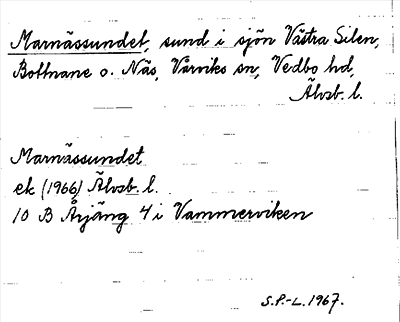 Marnässundet, sund i sjön Västra Silen,
Bottnane o. Näs, Vårviks sn, Vedbo hd,
Älvsb. l.
Marnässundet
ek (1966) Älvsb. l.
10 B Årjäng 4 i Vammerviken
S.P.-L. 1967.